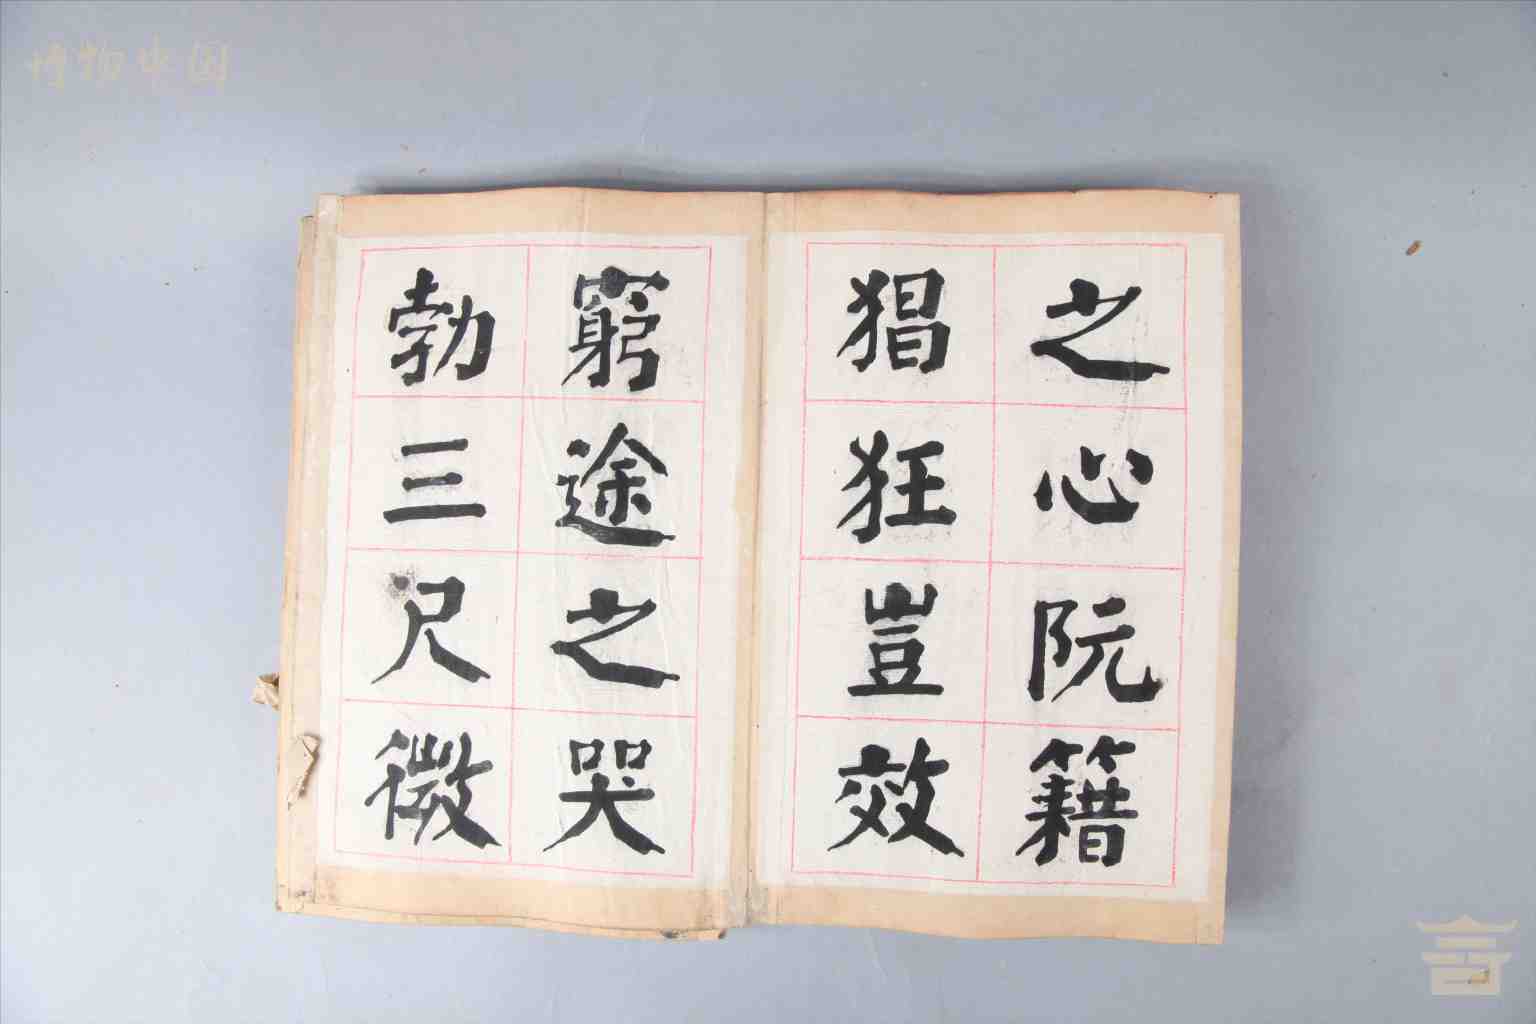 博物中国
之心阮籍
猖狂豈效
窮途之哭
勃三尺微